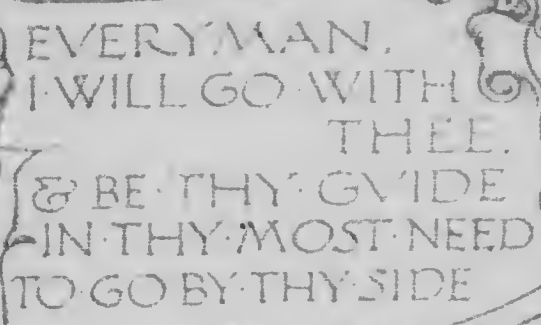 EVERYMAN,
I·WILL GO·WITH
THEE.
& BE·THY·GVIDE
IN·THY·MOST·NEED
TO·GO BY·THY·SIDE